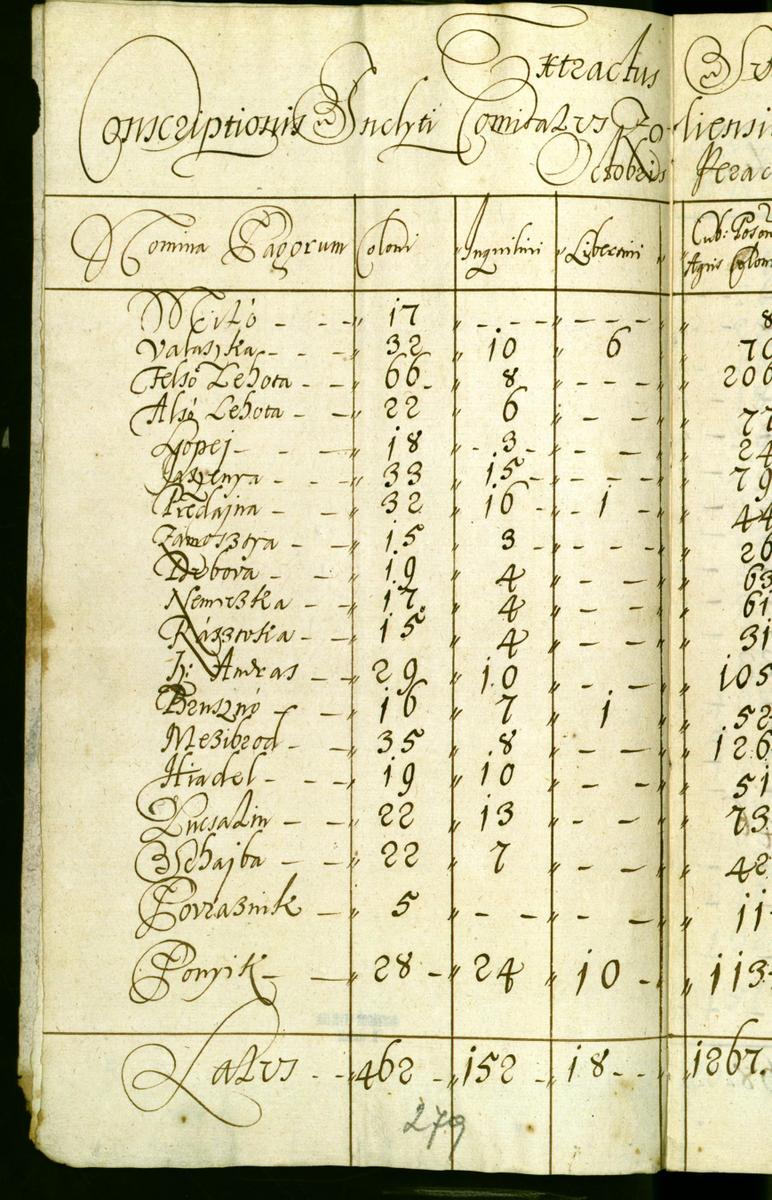 Extractus
Conscriptionis Inclyti Comitatus Zoliensi
Octobris Perac
Nomina Pagorum Coloni Inquilini Libertini Cub: Poson
Agris Colon
Mitó - - - 17 - - - - - - - 8
Valaszka - - 32 10 6 70
Felsó Lehota - - 66 - 8 - - - 206
Alsó Lehota - - 22 6 - - 77
Lopej - - - 18 - 3 - - - 24
Jaszenya - - 33 15 - - - 79
Predajna - - 32 16 - 1 - 44
Zamosztya - - 15 3 - - - - 26
Dubova - - 19 4 - - 63
Nemeczka - - 17 4 - - 61
Rásztoka - - 15 4 - - 31
h: Andras - - 29 10 - - 105
Brusznó - - 16 7 1 52
Mezibrod - - 35 8 - - 126
Hiadel - - - 19 10 - - 51
Lucsatin - - 22 13 - - 73
Schajba - - 22 7 - - 42
Povraznik - 5 - - - - - 11
Ponyik - - 28 - 24 10 - 113
Latus - - 462 - 152 - 18 - - 1267.
279